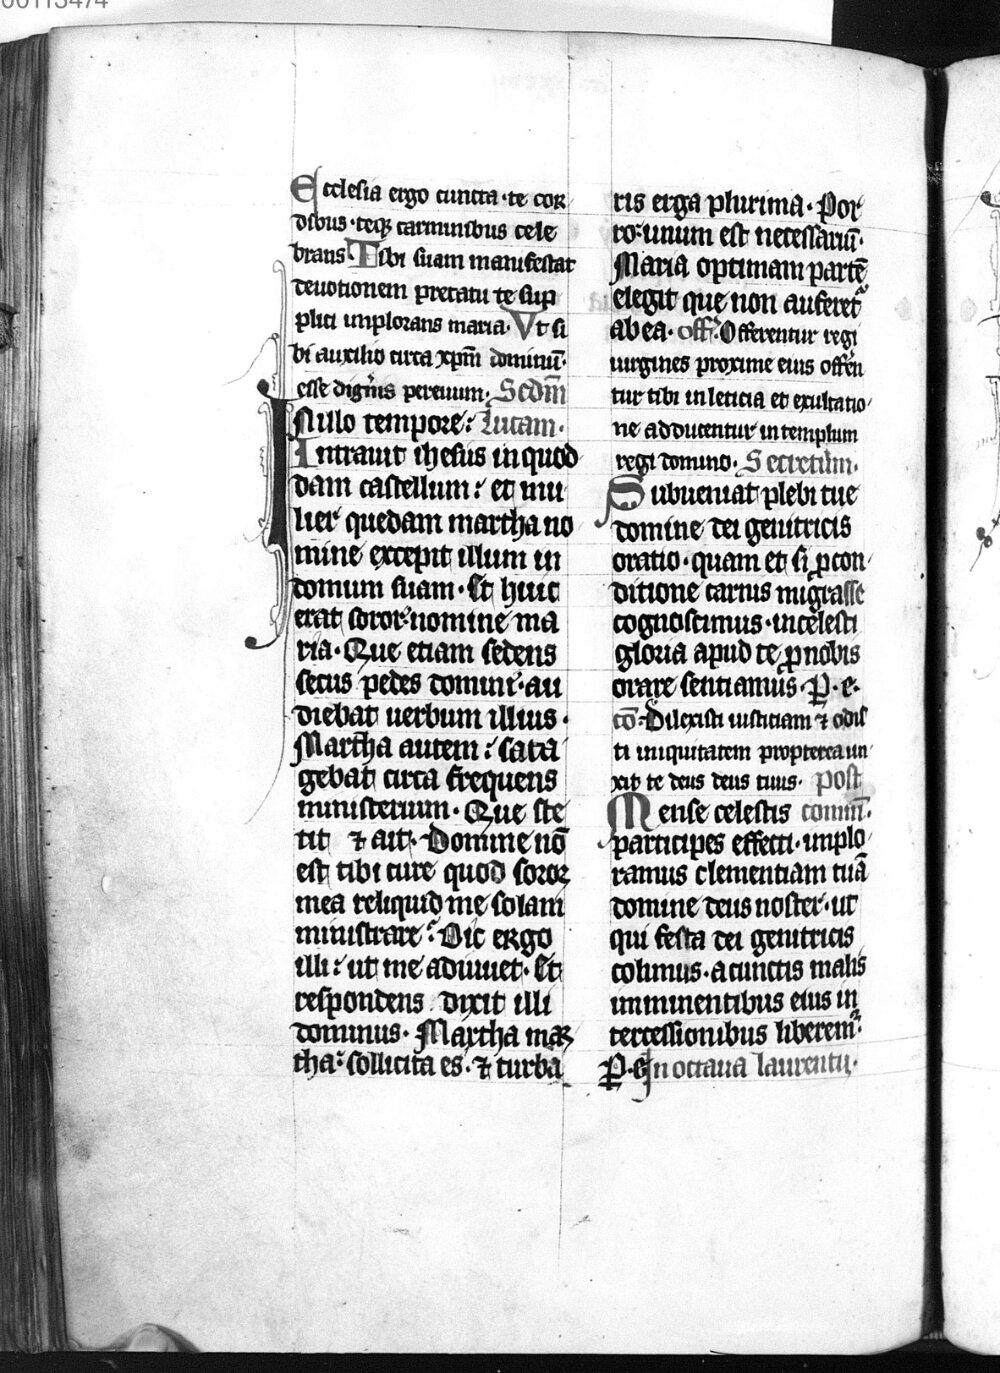 00113474
Ecclesia ergo cuncta · te cor
dibus · teqꝫ carminibus cele
brans Tibi suam manifestat
deuotionem precatu te sup
plici implorans maria · Vt si
bi auxilio circa xp̄m dominū ·
esse digneris perenium · Scdm̄
In illo tempore : Lucam ·
Intrauit ihesus in quod
dam castellum : et mu
lier quedam martha no
mine excepit illum in
domum suam · Et huic
erat soror nomine ma
ria · Que etiam sedens
secus pedes domini · au
diebat uerbum illius ·
Martha autem : sata
gebat circa frequens
ministerium · Que ste
tit ⁊ ait · Domine nō
est tibi cure quod soror
mea reliquid me solam
ministrare : Dic ergo
illi : ut me adiuuet · Et
respondens dixit illi
dominus · Martha mar
tha : sollicita es · ⁊ turba
ris erga plurima · Por
ro · unum est necessariū ·
Maria optimam partē
elegit que non auferet᷑
ab ea · off · Offerentur regi
uirgines proxime eius offerū
tur tibi in leticia et exultatio
ne adducentur in templum
regi domino · Secretum ·
Subueniat plebi tue
domine dei genitricis
oratio · quam et si ꝓ con
ditione carnis migrasse
cognoscimus · in celesti
gloria apud te ꝓ nobis
orare sentiamus · P · e ·
cō · Dilexisti iusticiam ⁊ odis
ti iniquitatem propterea un
xit te deus deus tuus · post
Mense celestis comm̄ ·
participes effecti · implo
ramus clementiam tuā
domine deus noster · ut
qui festa dei genitricis
colimus · a cunctis malis
imminentibus eius in
tercessionibus liberem᷑ ·
P · e In octaua laurentii ·